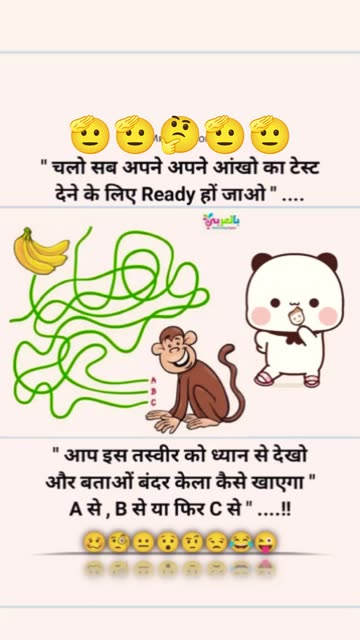 " चलो सब अपने अपने आंखो का टेस्ट
देने के लिए Ready हों जाओ " ....
بالعربي
A
B
C
" आप इस तस्वीर को ध्यान से देखो
और बताओं बंदर केला कैसे खाएगा "
A से , B से या फिर C से " ....!!